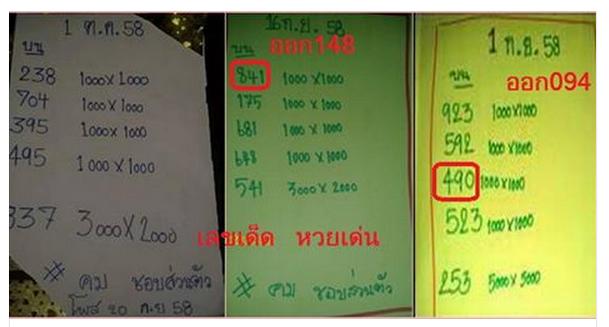 1 ต.ค.58
บน
238 1000x1000
704 1000x1000
395 1000x1000
495 1000x1000
337 3000x2000
# คม ชอบส่วนตัว
โพส 20 ก.ย 58
16 ก.ย. 58
บน ออก148
841 1000x1000
175 1000x1000
681 1000x1000
648 1000x1000
541 3000x2000
เลขเด็ด หวยเด่น
# คม ชอบส่วนตัว
1 ก.ย.58
บน ออก094
923 1000x1000
592 1000x1000
490 1000x1000
523 1000x1000
253 5000x5000